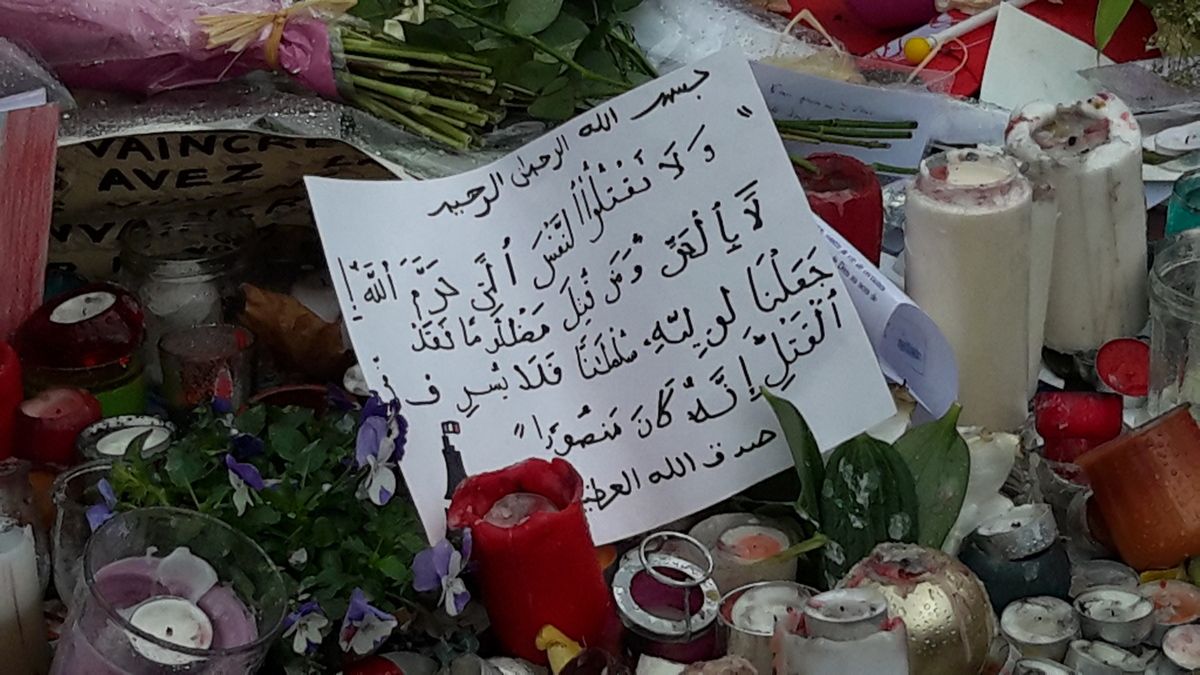 VAINCRE
AVEZ
بسم الله الرحمن الرحيم
" وَلَا تَقْتُلُوا۟ ٱلنَّفْسَ ٱلَّتِى حَرَّمَ ٱللَّهُ إِ
لَّا بِٱلْحَقِّ وَمَن قُتِلَ مَظْلُومًا فَقَدْ
جَعَلْنَا لِوَلِيِّهِۦ سُلْطَـٰنًا فَلَا يُسْرِف فِّى
ٱلْقَتْلِ إِنَّهُۥ كَانَ مَنصُورًا "
صدق الله العظيم